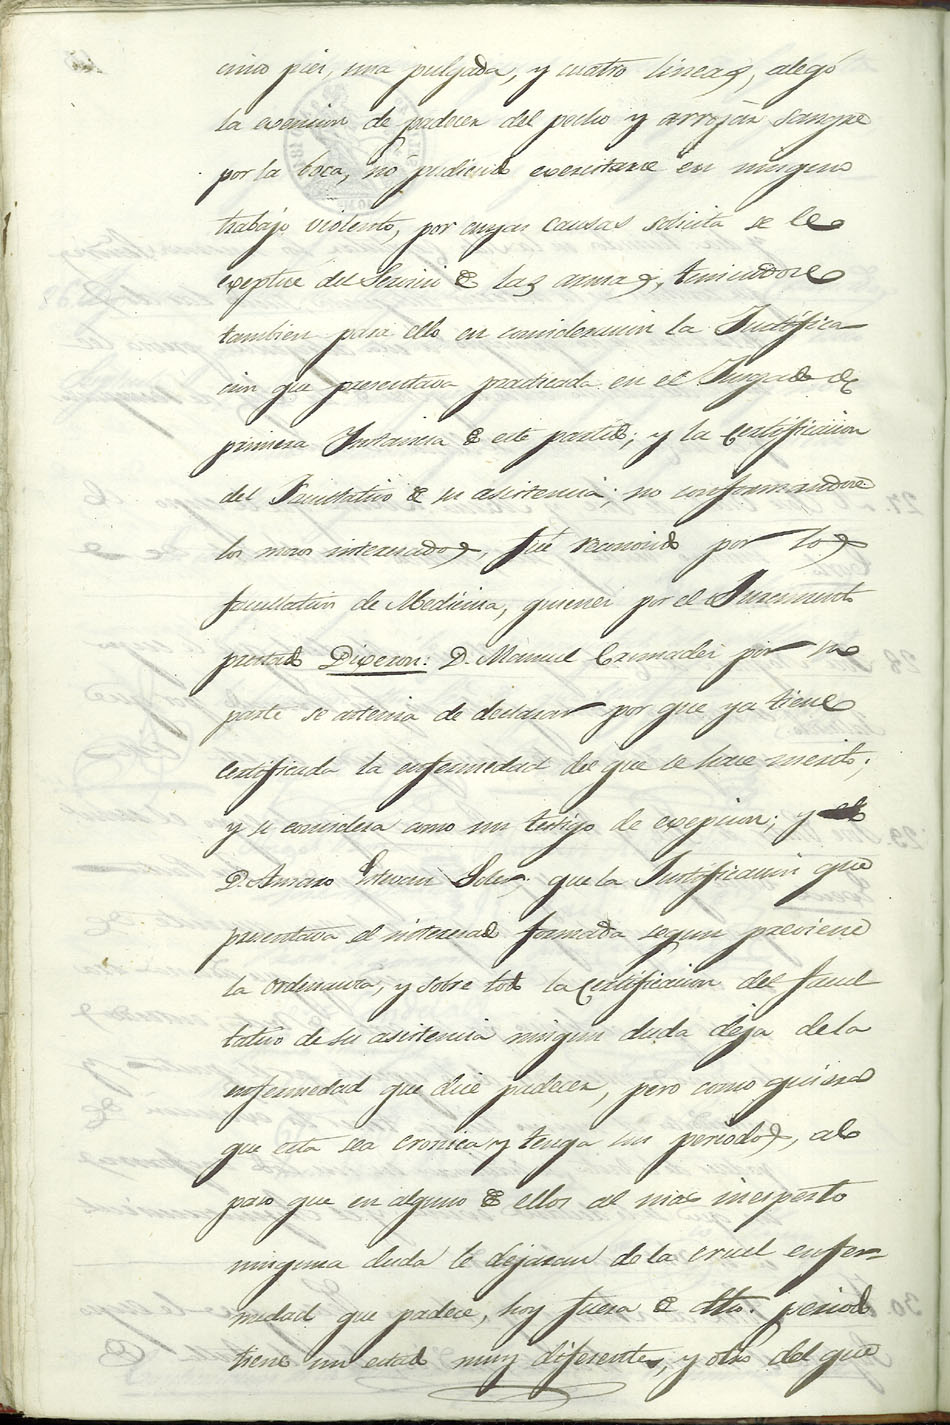 cinco pies, una pulgada, y cuatro lineas, alegó
la exencion de padecer del pecho y arrojar sangre
por la boca, no pudiendo exercitarse en ninguno
trabajo violento, por cuyas causas solicita se le
exeptue del Servicio de las armas, teniendose
tambien para ello en consideracion la Justifica
cion que presentava practicada en el Juzgado de
primera Instancia de este partido; y la Certificacion
del Facultativo de su asistencia; no conformandose
los mozos interesados, fué reconocido por los
facultativos de Medicina, quienes por el Juramento
prestado Dixeron: D. Manuel por su
parte se astenia de declarar por que ya tiene
certificada la enfermedad del que se hace merito;
y se considera como un testigo de exepcion; y
D. Amaro Estevan Soler que la Justificacion que
presentava el interesado formada segun previene
la ordenanza, y sobre todo la Certificacion del Facul
tativo de su asistencia ningun duda deja de la
enfermedad que dice padecer, pero como quiera
que esta sea cronica y tenga sus periodos, al
paso que en alguno de ellos al mas inesperto
ninguna duda le dejaran de la cruel enfer
medad que padece, hoy fuera de dho. periodo
tiene un estado muy diferente, y otro del que